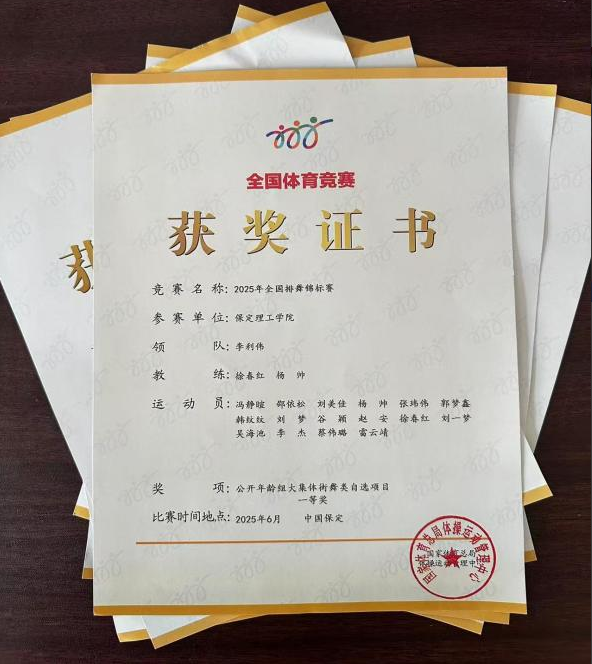 全国体育竞赛
获奖证书
竞赛名称: 2025年全国排舞锦标赛
参赛单位: 保定理工学院
领队: 李利伟
教练: 徐春红 杨帅
运动员: 冯静暄 邵依松 刘美佳 杨帅 张玮伟 郭梦鑫
韩纹纹 刘梦 谷颖 赵安 徐春红 刘一梦
吴海池 李杰 蔡伟璐 雷云靖
奖项: 公开年龄组大集体街舞类自选项目
一等奖
比赛时间地点: 2025年6月 中国保定
国家体育总局体操运动管理中心
国家体育总局
体操运动管理中
获